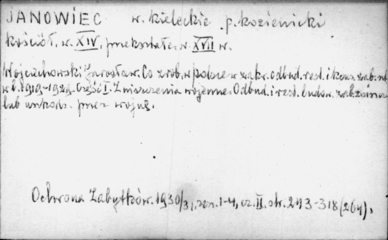 JANOWIEC w. kieleckie p. kozienicki
kościół, w. XIV, przekształc. w XVII w.
Wojciechowski Jarosław. Co zrob. w Polsce w zakr. odbud. rest. i konserw. zabytk.
w l. 1919-1929. Część I. Zniszczenia wojenne. Odbud. i rest. budow. zakończona
lub uszkodz. przez wojnę.
Ochrona Zabytków. 1930/31, zesz. 1-4, cz. II. str. 293-318 (264).